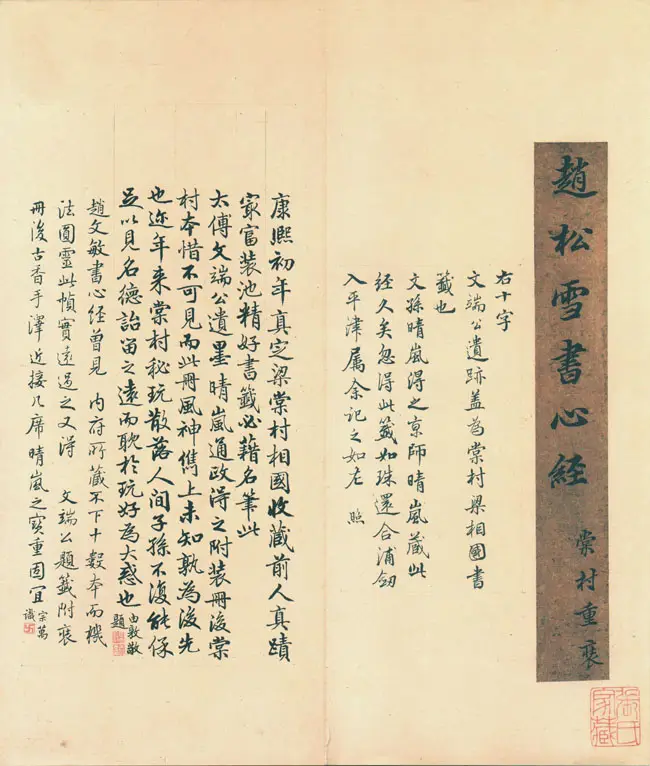 趙松雪書心經
棠村重裝
張氏
家藏
右十字
文端公遺跡蓋為棠村梁相國書
籤也
文孫晴嵐得之京師晴嵐藏此
經久矣忽得此籤如珠還合浦劍
入平津屬余記之如左 照
康熙初年真定梁棠村相國收藏前人真蹟
最富裝池精好書籤必藉名筆此
太傅文端公遺墨晴嵐通政得之附裝冊後棠
村本惜不可見而此冊風神儁上未知孰為後先
也迩年来棠村秘玩散落人間子孫不復能保
足以見名德詒留之遠而耽於玩好為大惑也
由敦敬
題
趙文敏書心經曾見 内府所藏不下十數本而機
法圓靈此幀實遠過之又得 文端公題籤附裝
冊後古香手澤近接几席晴嵐之寶重固宜
宗萬
識